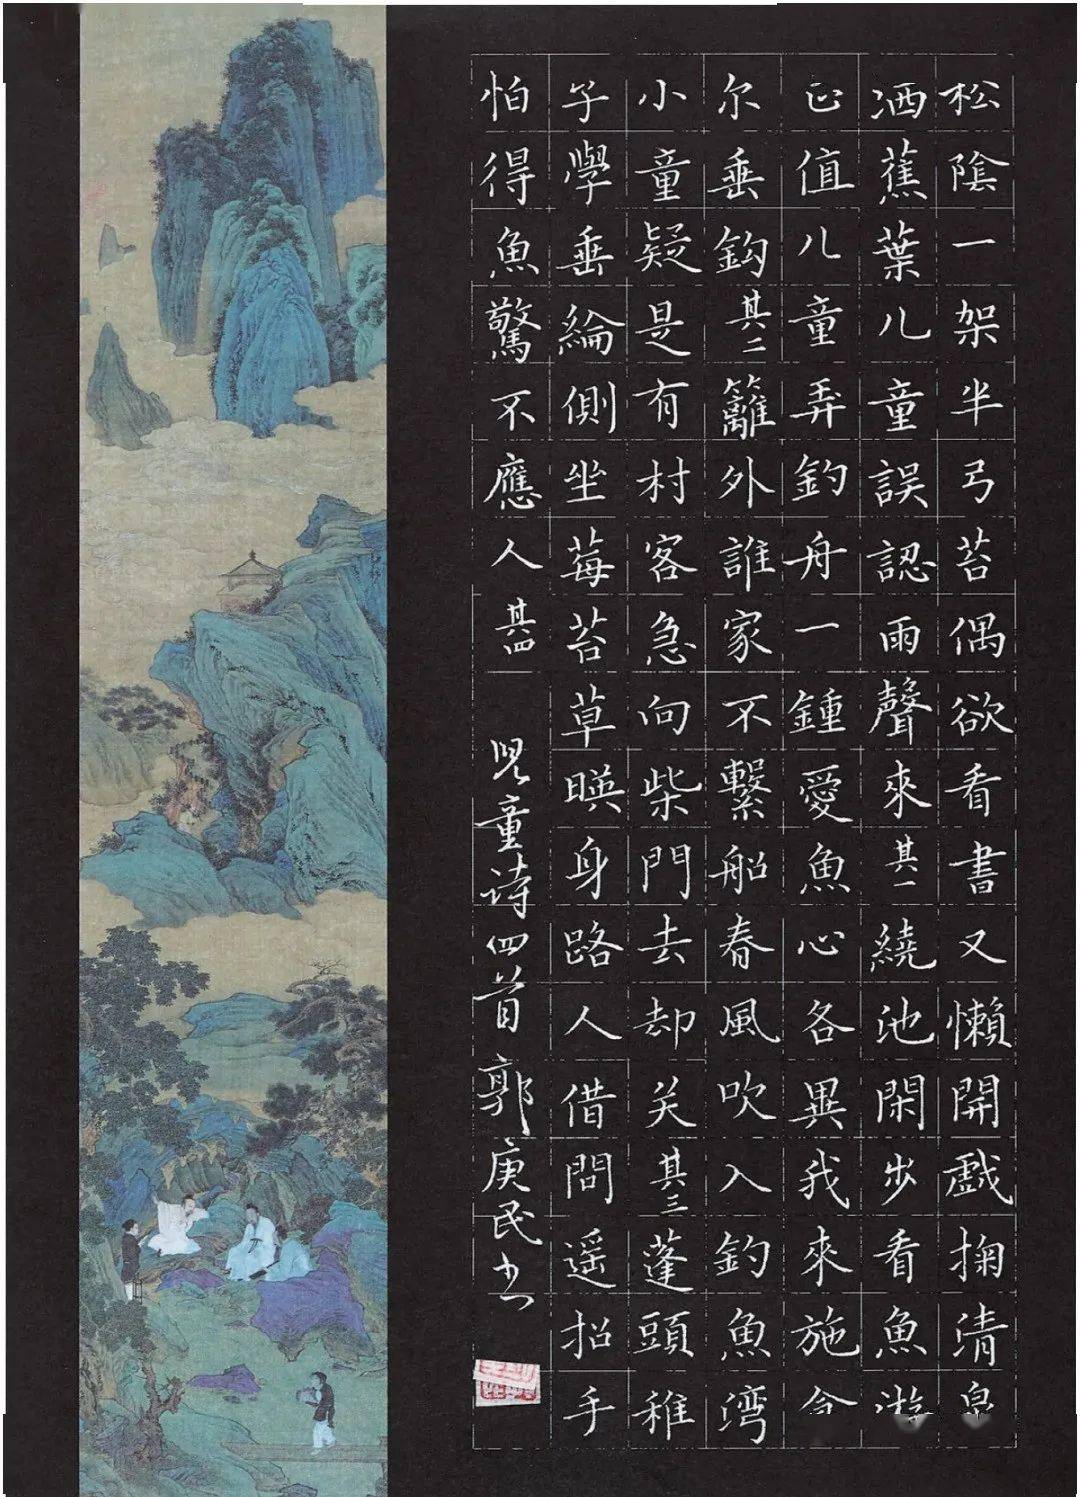 松陰一架半弓苔偶欲看書又懶開戲掬清泉
洒蕉葉儿童誤認雨聲來其一繞池閑步看魚游
正值儿童弄釣舟一鍾愛魚心各異我來施食
尔垂鈎其二籬外誰家不繫船春風吹入釣魚湾
小童疑是有村客急向柴門去却关其三蓬頭稚
子學垂綸側坐莓苔草暎身路人借問遥招手
怕得魚驚不應人其四
児童诗四首郭庚民书